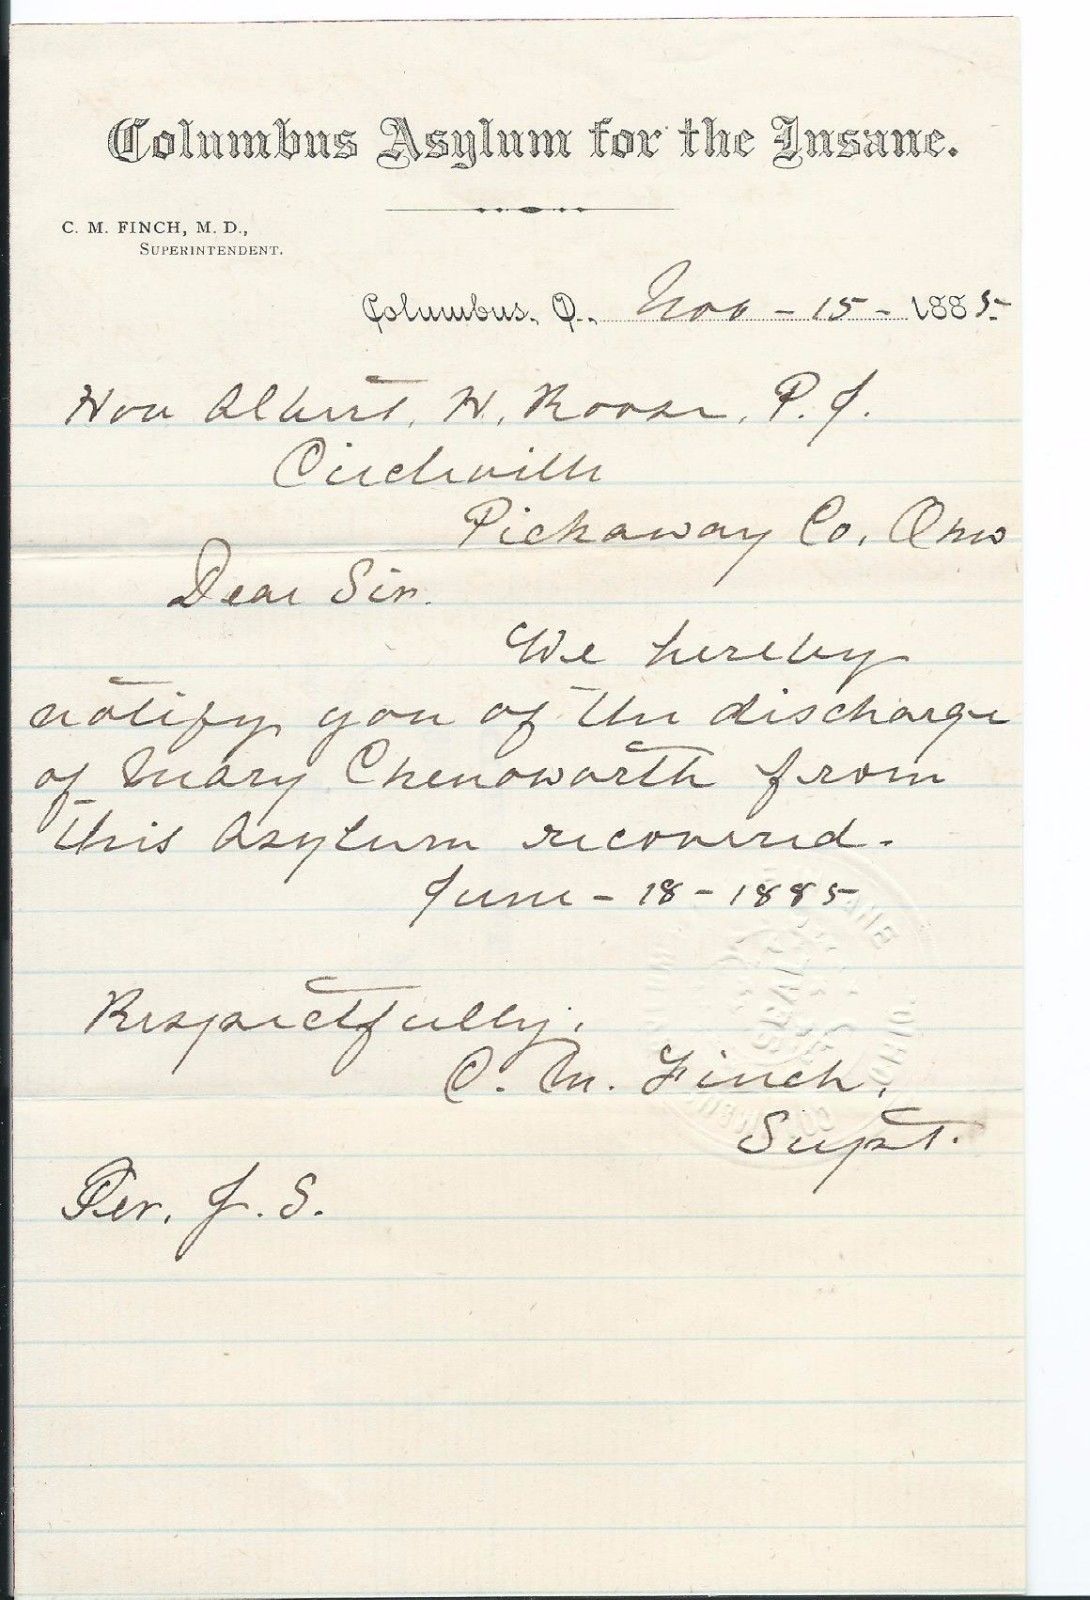 Columbus Asylum for the Insane.
C. M. FINCH, M. D.,
SUPERINTENDENT.
Columbus, O., Nov - 15 - 1885-
Hon Albert. H. Roose. P. J.
Circleville
Pickaway Co. Ohio
Dear Sir.
We hereby
notify you of the discharge
of Mary Chenoworth from
this Asylum recovered.
June - 18 - 1885
Respectfully.
C. M. Finch,
Supt.
Per. J. S.
SEAL
OHIO.